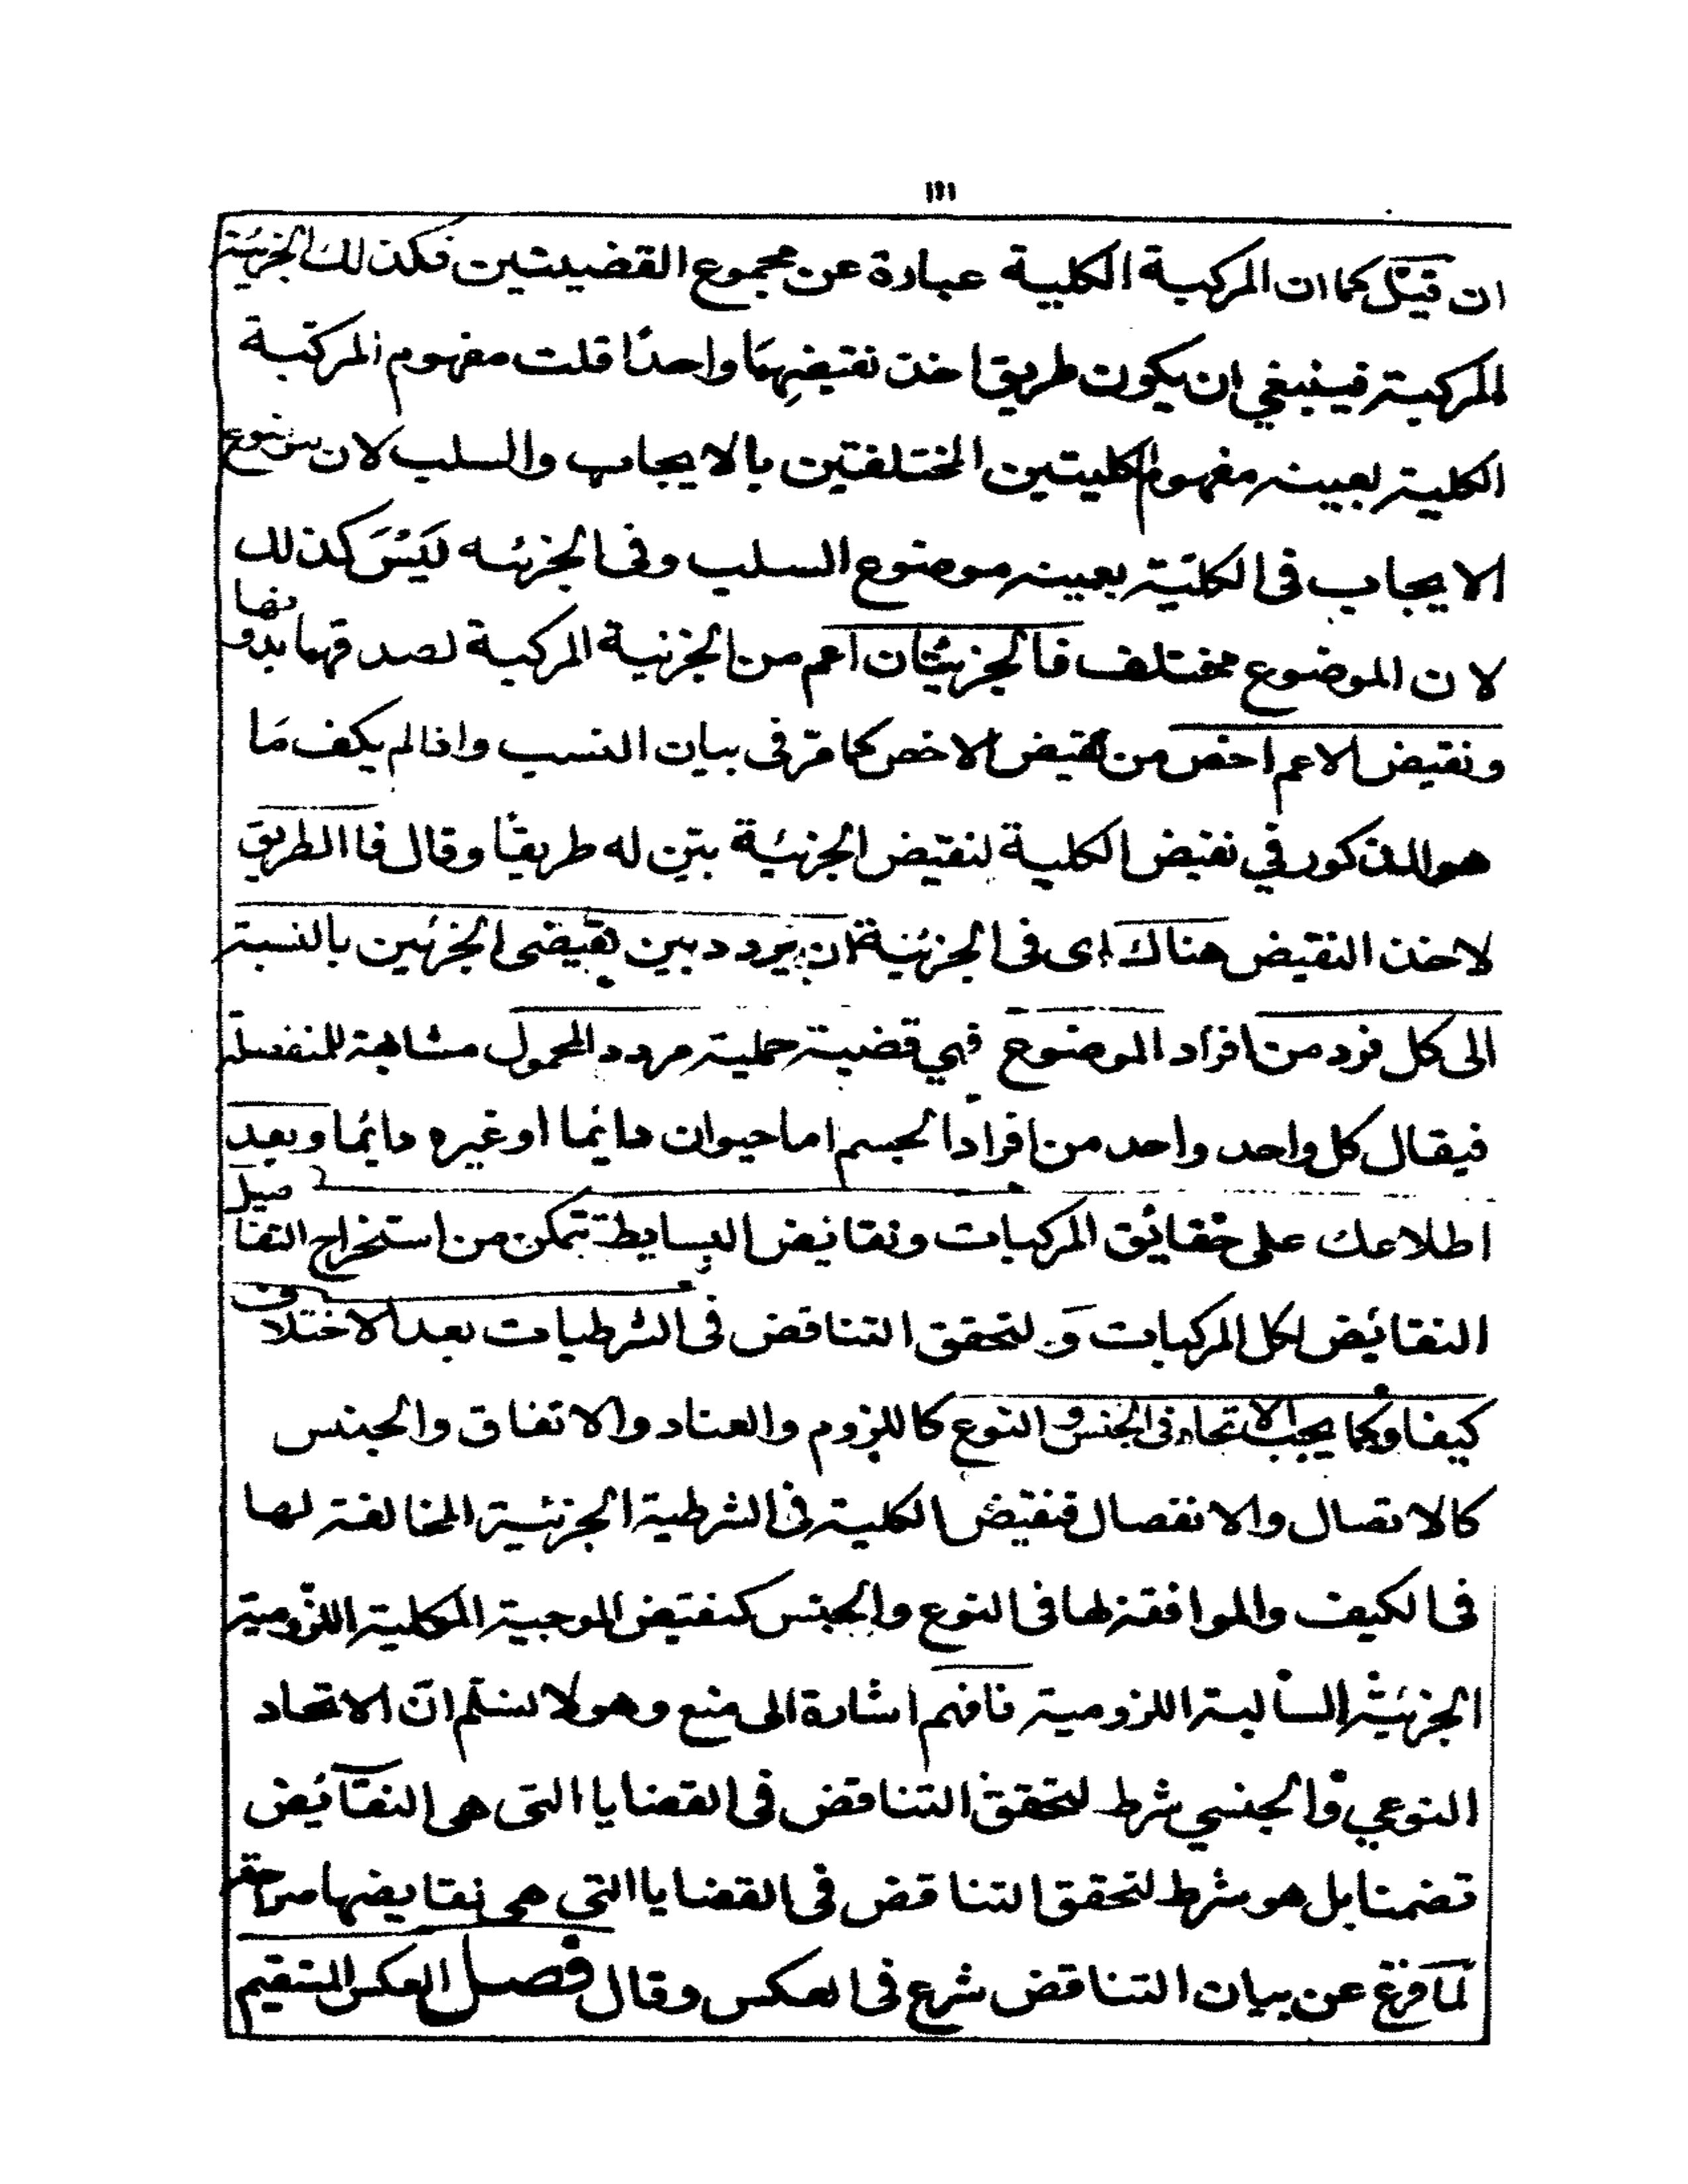 ١١١
ان قيل كما ان المركبة الكلية عبارة عن مجموع القضيتين فكذلك الجزئية
المركبة فينبغي ان يكون طريق اخذ نقيضهما واحدًا قلت مفهوم المركبة
الكلية بعينه مفهوم الكليتين المختلفتين بالايجاب والسلب لان موضوع
الايجاب فى الكلية بعينه موضوع السلب وفى الجزئيه ليس كذلك
لان الموضوع مختلف فالجزئيتان اعم من الجزئية المركبة لصدقهما بدونها
ونقيض الاعم اخص من نقيض الاخص كما مرّ فى بيان النسب واذا لم يكف مَا
هو المذكور في نقيض الكلية لنقيض الجزئية بيّن له طريقًا وقال فا الطريق
لاخذ النقيض هناك اى فى الجزئية ان يردد بين نقيضى الجزئين بالنسبة
الى كل فرد من افراد الموضوع فهي قضية حملية مردد المحمول مشابهة للمنفصلة
فيقال كل واحد واحد من افراد الجسم اما حيوان دائما او غيره دائما وبعد
اطلاعك على حقائق المركبات ونقائض البسايط تتمكن من استخراج التفاصيل
النقائض لكل المركبات و لتحقق التناقض فى الشرطيات بعد الاختلاف
كيفا وكما يجب الاتحاد فى الجنس و النوع كاللزوم والعناد والاتفاق والجنس
كالاتصال والانفصال فنقيض الكلية فى الشرطية الجزئية المخالفة لها
فى الكيف والموافقة لها فى النوع والجنس كنقيض الموجبة الكلية اللزومية
الجزئية السالبة اللزومية فافهم اشارة الى منع وهو لا نسلم انّ الاتحاد
النوعي والجنسي شرط لتحقق التناقض فى القضايا التى هى النقائض
تضمنا بل هو شرط لتحقق التناقض فى القضايا التي هى نقايضها صراحة
لمّا فرغ عن بيان التناقض شرع فى العكس وقال فصل العكس المستقيم